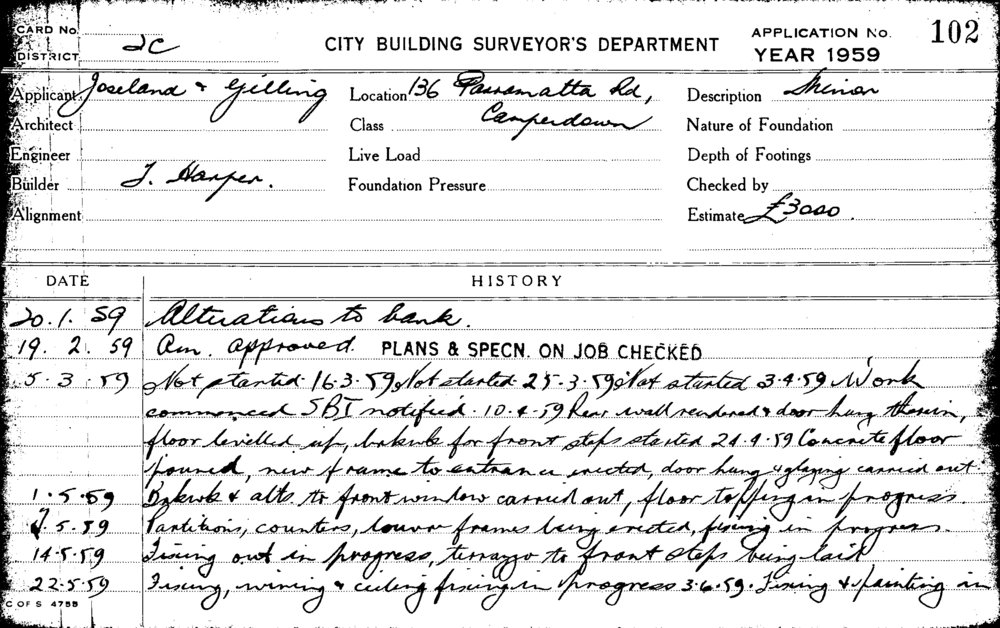 CARD No.
DISTRICT 2C
CITY BUILDING SURVEYOR'S DEPARTMENT
APPLICATION No. 102
YEAR 1959
Applicant Joseland & Gilling
Location 136 Parramatta Rd,
Camperdown
Description Minor
Architect
Class
Nature of Foundation
Engineer
Live Load
Depth of Footings
Builder J. Harper.
Foundation Pressure
Checked by
Alignment
Estimate £3000.
DATE HISTORY
20.1.59 Alterations to bank.
19.2.59 Am. approved. PLANS & SPECN. ON JOB CHECKED
5.3.59 Not started. 16.3.59 Not started. 25.3.59 Not started 3.4.59 Work
commenced SBI notified. 10.4.59 Rear wall rendered & door hung therein,
floor levelled up, bakwk for front steps started 24.4.59 Concrete floor
poured, new frame to entrance erected, door hung & glazing carried out.
1.5.59 Bakwk & alts to front window carried out, floor topping in progress
7.5.59 Partitions, counters, louvre frames being erected, fixing in progress.
14.5.59 Fixing out in progress, terrazzo to front steps being laid
22.5.59 Fixing, wiring & ceiling fixing in progress 3.6.59. Fixing & painting in
C OF S 4755